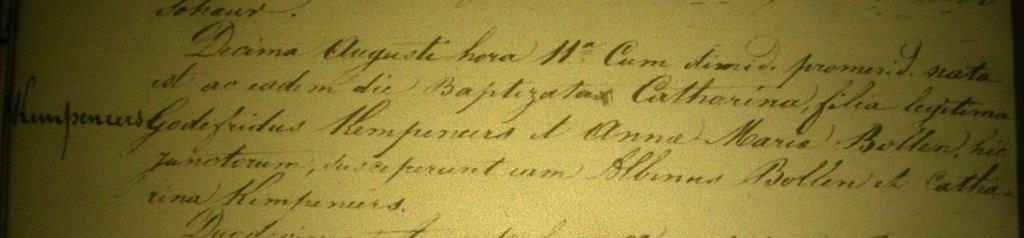 Schaur.
Decima Augusti hora 11ª Cum dimid. promerid. nata
est ac eadem die Baptizata Catharina, filia legitima
Kempeneers Godefridus Kempeneers et Anna Maria Bollen, hic
junctorum, susceperunt eam Albinus Bollen et Catha-
rina Kempeneers.